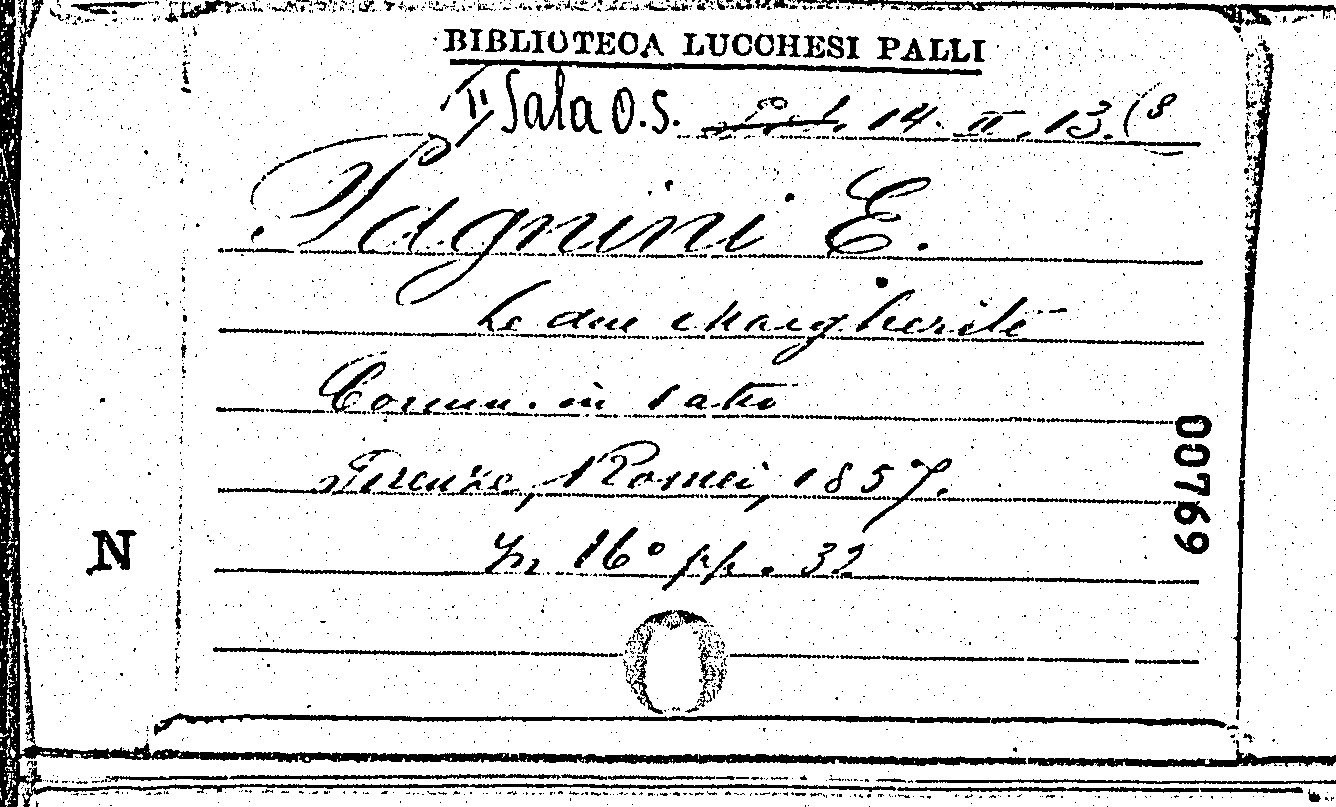 BIBLIOTECA LUCCHESI PALLI
II Sala O.S. 14. II. 13.(8
Pagnini E.
Le due Margherite
Comm. in 1 atto
Firenze, Romei, 1857.
In 16° pp. 32
N
00769